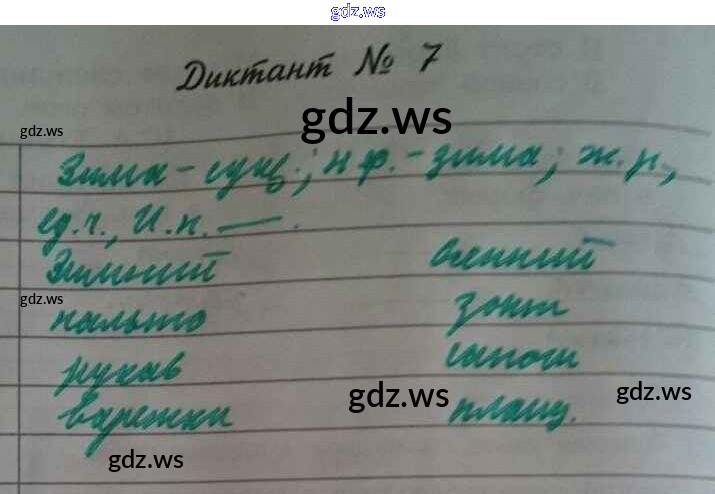 gdz.ws
Диктант № 7
gdz.ws
gdz.ws
Зима - сущ.; н.ф. - зима; ж.р.,
ед.ч., И.п. —.
Зимний Осенний
gdz.ws
пальто зонт
рукав сапоги
gdz.ws
gdz.ws
варежки плащ.
gdz.ws